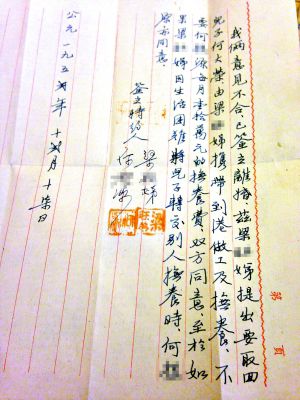 我俩意見不合,已簽立離婚,兹梁娣提出要取回
兒子何大荣由梁娣携帶到港做工及撫養、不
要何傑每月壹拾萬元的撫養費,双方同意,至於如
果梁娣因生活困難將兒子轉交别人撫養時,何
傑亦同意。
簽立特約人 梁娣
何傑
公元一九五年 十月十柒日
第 頁